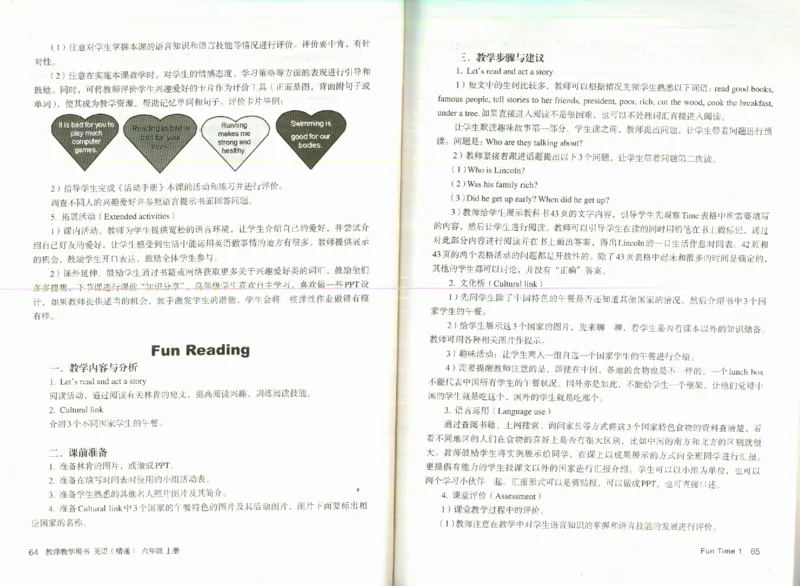 （1）注意对学生掌握本课的语言知识和语言技能等情况进行评价。评价要中肯，有针
对性。
（2）注意在实施本课教学时，对学生的情感态度、学习策略等方面的表现进行引导和
鼓励。同时，可将教师评价学生兴趣爱好的卡片作为评价工具（正面是图，背面附句子或
单词），使其成为教学资源，帮助记忆单词和句子。评价卡片举例：
It is bad for you to
play much
computer
games.
Reading in bed is
bad for your
eyes.
Running
makes me
strong and
healthy.
Swimming is
good for our
bodies.
2）指导学生完成《活动手册》本课的活动和练习并进行评价。
调查不同人的兴趣爱好并参照语言提示书面回答问题。
5. 拓展活动（Extended activities）
1）课内活动。教师为学生提供宽松的语言环境，让学生介绍自己的爱好，并尝试介
绍自己好友的爱好，让学生感受到生活中能运用英语做事情的地方有很多。教师提供展示
的机会，鼓励学生开口表达，鼓励全体学生参与。
2）课外延伸。鼓励学生通过书籍或网络获取更多关于兴趣爱好类的词汇。鼓励他们
多多搜集，下节课进行课前“知识分享”。高年级学生喜欢自主学习，喜欢做一些PPT设
计，如果教师长供适当的机会，放手激发学生的潜能，学生会将一些弹性作业做得有模
有样。
Fun Reading
一、教学内容与分析
1. Let's read and act a story
阅读活动，通过阅读有关林肯的短文，提高阅读兴趣，训练阅读技能。
2. Cultural link
介绍3个不同国家学生的午餐。
二、课前准备
1. 准备林肯的图片，或做成PPT。
2. 准备在填写时间表时使用的小组活动表。
3. 准备学生熟悉的其他名人照片图片及其简介。
4. 准备Cultural link中3个国家的午餐特色的图片及其活动图片，图片下面要标出相
应国家的名称。
64 教师教学用书 英语（精通） 六年级上册
三、教学步骤与建议
1. Let's read and act a story
1）短文中的生词比较多，教师可以根据情况先领学生熟悉以下词语：read good books,
famous people, tell stories to her friends, president, poor, rich, cut the wood, cook the breakfast,
under a tree.如果直接进入阅读不是很困难，也可以不处理词汇直接进入阅读。
让学生默读趣味故事第一部分。学生读之前，教师提出问题，让学生带着问题进行预
读。问题是：Who are they talking about?
2）教师紧接着跟进话题提出以下3个问题，让学生带着问题第二次读。
（1）Who is Lincoln?
（2）Was his family rich?
（3）Did he get up early? When did he get up?
3）教师给学生展示教科书43页的文字内容，引导学生先观察Time表格中所需要填写
的内容，然后让学生进行阅读。教师可以引导学生在读的同时用铅笔在书上做标记，通过
对此部分内容进行阅读并在书上画出答案，得出Lincoln的一日生活作息时间表。42页和
43页的两个表格活动的问题都是开放性的。除了43页表格中起床和散步的时间是确定的，
其他的学生都可以讨论，并没有“正确”答案。
2. 文化桥（Cultural link）
1）先问学生除了中国特色的午餐是否还知道其他国家的情况。然后介绍书中3个国
家学生的午餐。
2）给学生展示这3个国家的图片，先来聊一聊，看学生是否有课本以外的知识储备。
教师可用各种相关图片作提示。
3）趣味活动：让学生两人一组自选一个国家学生的午餐进行介绍。
4）需要提醒教师注意的是，即使在中国，各地的食物也是不一样的。一个lunch box
不能代表中国所有学生的午餐状况。国外亦是如此，不能给学生一个框架，让他们觉得中
国的学生就是吃这个，国外的学生就是吃那个。
3. 语言运用（Language use）
通过查阅书籍、上网搜索、询问家长等方式将这3个国家特色食物的资料查清楚，看
看不同地区的人们在食物的喜好上是否有很大区别，比如中国的南方和北方的区别就很
大。教师鼓励学生将实例展示给同学，在课上以成果展示的方式向全班同学进行汇报。
更提倡有能力的学生找课文以外的国家进行汇报介绍。学生可以以小组为单位，也可以
两个学习小伙伴一起。汇报形式可以是剪贴报，可以做成PPT，也可直接口述。
4. 课堂评价（Assessment）
1）课堂教学过程中的评价。
（1）教师注意在教学中对学生语言知识的掌握和语言技能的发展进行评价。
Fun Time 1 65